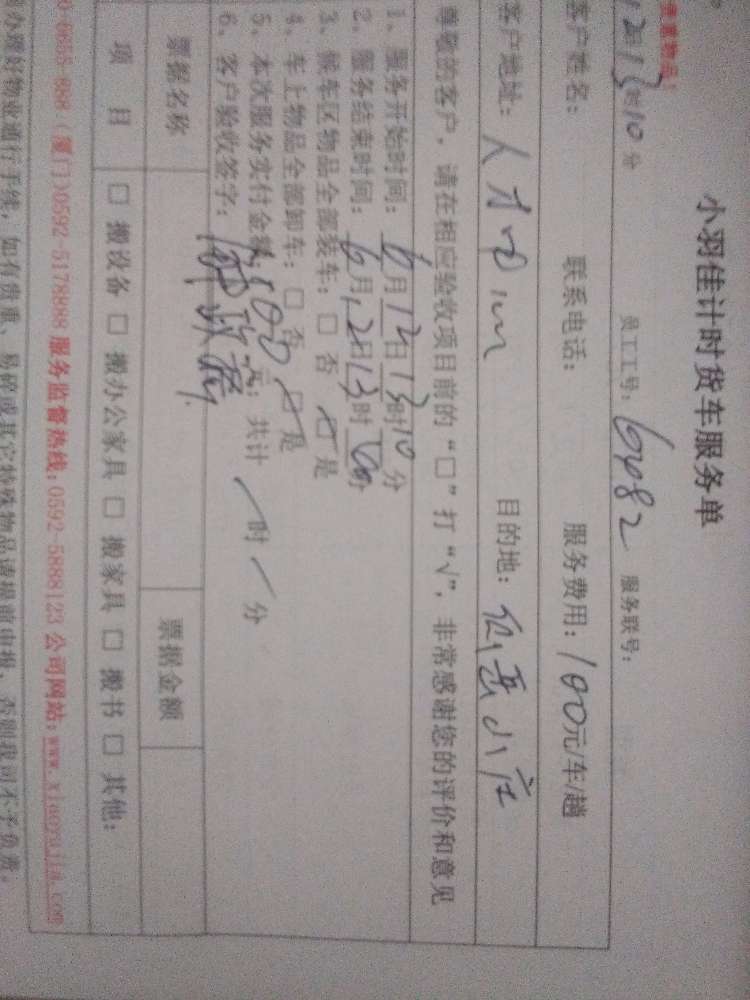 小羽佳计时货车服务单
12日13时10分 员工工号：6482 服务联号：
贵重物品：
客户姓名： 联系电话： 服务费用：100元/车/趟
客户地址： 目的地：
尊敬的客户，请在相应验收项目前的“□”打“√”，非常感谢您的评价和意见
1、服务开始时间：6月12日13时10分
2、服务结束时间：6月12日13时分
3、候车区物品全部装车：□ 否 □ 是
4、车上物品全部卸车：□ 否 □ 是
5、本次服务实付金额：100元；共计 / 时 / 分
6、客户验收签字：
票据名称 票据金额
项 目 □ 搬设备 □ 搬办公家具 □ 搬家具 □ 搬书 □ 其他：
0-6655-888 (厦门)0592-5178888 服务监督热线：0592-5888123 公司网站：www.xiaoyujia.com
办理好物业通行手续，如有贵重、易碎或其它特殊物品请提前申报，否则我司不予负责。